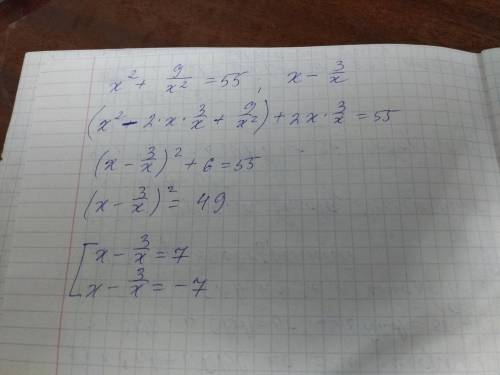 x² + 9/x² = 55, x − 3/x
(x² − 2·x·3/x + 9/x²) + 2x·3/x = 55
(x − 3/x)² + 6 = 55
(x − 3/x)² = 49
[x − 3/x = 7
x − 3/x = −7